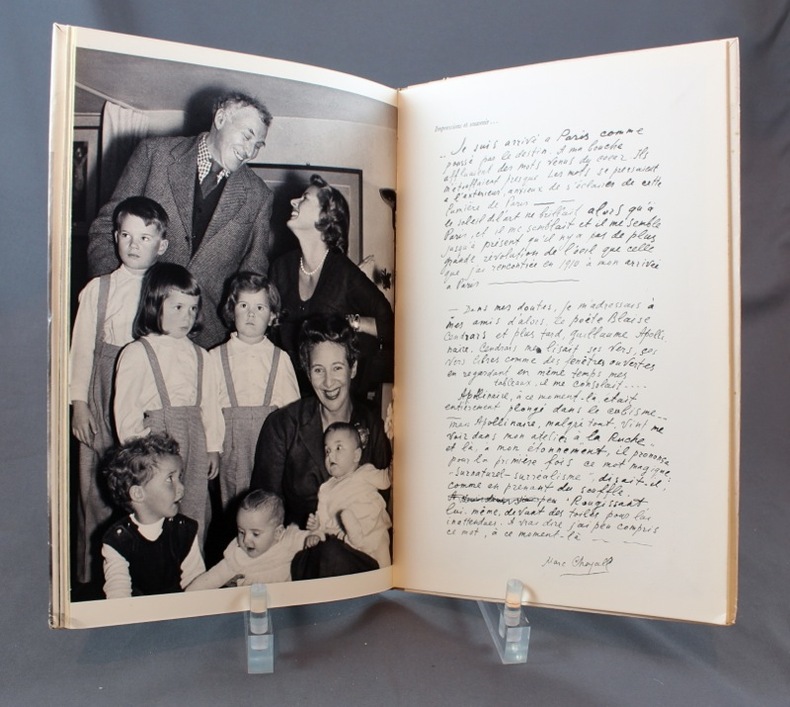 Impressions et souvenirs...
.. Je suis arrivé à Paris comme
poussé par le destin. A ma bouche
affluaient des mots venus du coeur. Ils
m'étouffaient presque. Les mots se pressaient
à l'extérieur, anxieux de s'éclairer de cette
lumière de Paris
le soleil d'art ne brillait alors qu'à
Paris, et il me semblait et il me semble
jusqu'à présent qu'il n'y a pas de plus
grande révolution de l'oeil que celle
que j'ai rencontrée en 1910 à mon arrivée
à Paris
— Dans mes doutes, je m'adressais à
mes amis d'alors, le poète Blaise
Cendrars et plus tard, guillaume Apolli
naire. Cendrars me lisait ses vers, ses
vers libres comme des fenêtres ouvertes
en regardant en même temps mes
tableaux, il me consolait....
Apollinaire, à ce moment-là était
entièrement plongé dans le cubisme..
mon Apollinaire, malgré tout, vint me
voir dans mon atelier à la Ruche.
et là, à mon étonnement, il prononça
pour la première fois ce mot magique
-Surnaturel-surréalisme-, disait-il,
comme en prenant du souffle.
peu Rougissant
lui-même, devant des toiles pour lui
inattendues. A vrai dire j'ai peu compris
ce mot, à ce moment-là
Marc Chagall